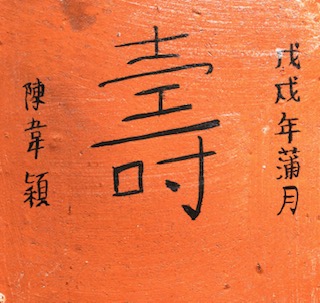 戊戌年蒲月
壽
陳韋穎